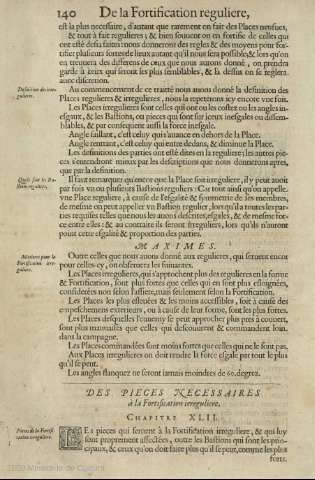 140 De la Fortification reguliere,
est la plus necessaire, d'autant que rarement on fait des Places neufues,
& tout à fait regulieres ; & bien souuent on en fortifie de celles qui
ont esté desia faites : nous donnerons des regles & des moyens pour for-
tifier plusieurs sortes de lieux autant qu'il nous sera possible; & lors qu'on
en treuuera des differens de ceux que nous aurons donné, on prendra
garde à ceux qui seront les plus semblables, & là dessus on se reglera
auec discretion.
Definition des irre-
gulieres.
Au commencement de ce traitté nous auons donné la definition des
Places regulieres & irregulieres, nous la repeterons icy encore vne fois.
Les Places irregulieres sont celles qui ont ou les costez ou les angles in-
esgaux, & les Bastions, ou pieces qui sont sur iceux inesgales ou dissem-
blables, & par consequent aussi la force inesgale.
Angle saillant, c'est celuy qui s'auance en dehors de la Place.
Angle rentrant, c'est celuy qui entre dedans, & diminue la Place.
Les definitions des parties ont esté dites en la reguliere ; les autres pie-
ces s'entendront mieux par les descriptions que nous donnerons apres,
que par la definition.
Quels sont les Ba-
stions reguliers.
Il faut remarquer qu'encore que la Place soit irreguliere, il y peut auoir
par fois vn ou plusieurs Bastions reguliers : Car tout ainsi qu'on appelle
vne Place reguliere, à cause de l'esgalité & symmetrie de ses membres,
de mesme on peut appeller vn Bastion regulier, lors qu'il a toutes les par-
ties requises telles que nous les auons descrites, esgales, & de mesme for-
ce entre elles : & au contraire ils seront irreguliers, lors qu'ils n'auront
point cette esgalité & proportion des parties.
MAXIMES.
Maximes pour la
Fortification irre-
guliere.
Outre celles que nous auons donné aux regulieres, qui seruent encor
pour celles-cy, on obseruera les suiuantes.
Les Places irregulieres, qui s'approchent plus des regulieres en la forme
& Fortification, sont plus fortes que celles qui en sont plus esloignées,
considerées non selon l'assiete, mais seulement selon la Fortification.
Les Places les plus esleuées & les moins accessibles, soit à cause des
empeschemens exterieurs, ou à cause de leur forme, sont les plus fortes.
Les Places desquelles l'ennemy se peut approcher plus prés à couuert,
sont plus mauuaises que celles qui descouurent & commandent loin
dans la campagne.
Les Places commandées sont moins fortes que celles qui ne le sont pas.
Aux Places irregulieres on doit rendre la force esgale par tout le plus
qu'il se peut.
Les angles flanquez ne seront iamais moindres de 60. degrez.
DES PIECES NECESSAIRES
à la Fortification irreguliere.
CHAPITRE XLII.
Pieces de la Fortifi-
cation irreguliere.
LEs pieces qui seruent à la Fortification irreguliere, & qui luy
sont proprement affectées, outre les Bastions qui sont les prin-
cipaux, & ceux qu'on doit faire plus qu'il se peut, comme les plus
forts.
Ministerio de Cultura